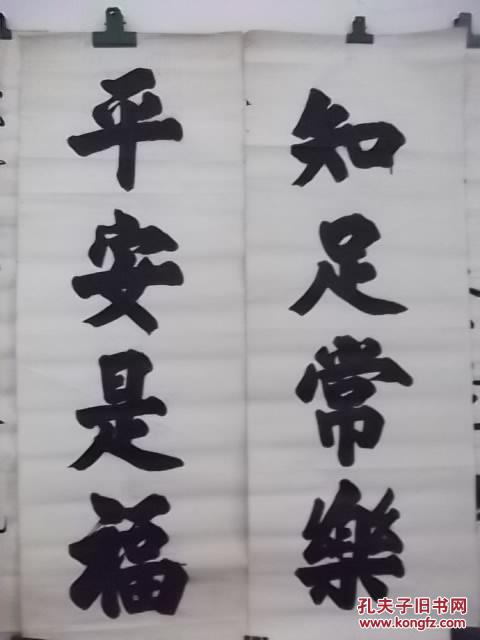 知足常樂
平安是福
孔夫子旧书网
www.kongfz.com